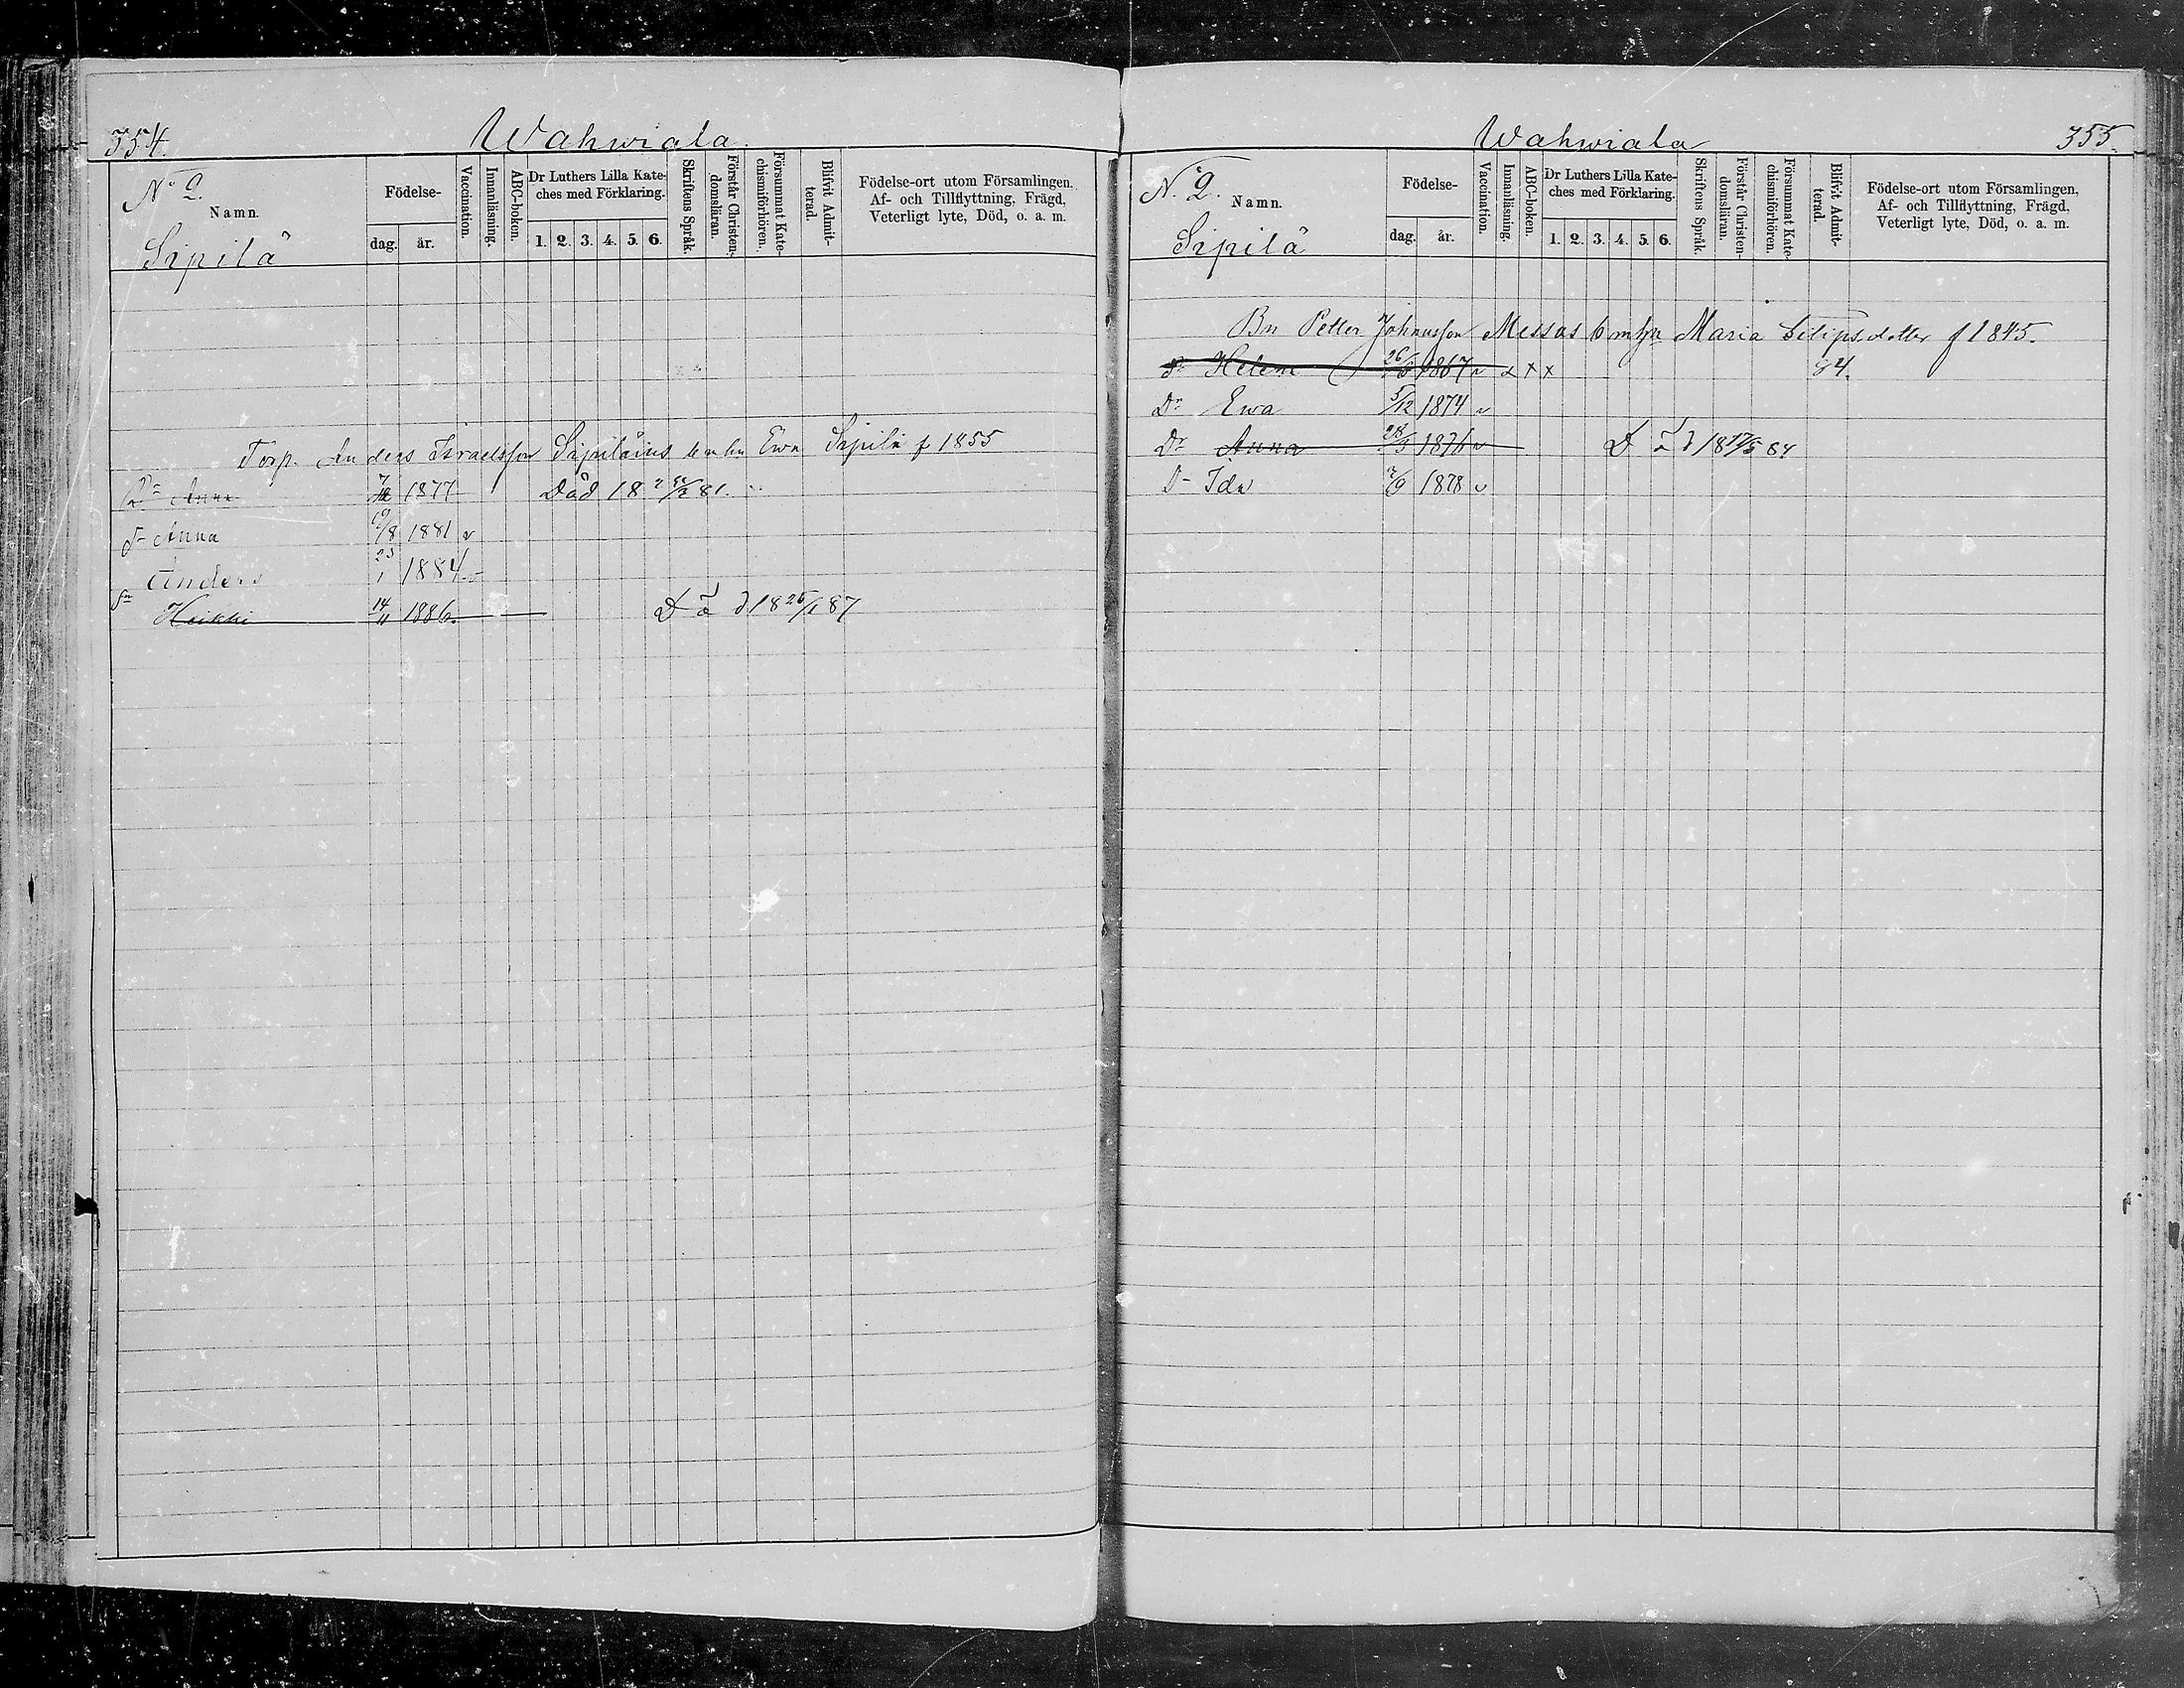 354.
Wahwiala.
No 2.
Namn.
Sipilä
Födelse-
dag. år.
Vaccination.
Innanläsning.
ABC-boken.
Dr Luthers Lilla Kate-
ches med Förklaring.
1. 2. 3. 4. 5. 6.
Skriftens Språk.
Förstår Christen-
domsläran.
Försummat Kate-
chismiförhören.
Blifvit Admit-
terad.
Födelse-ort utom Församlingen.
Af- och Tillflyttning, Frägd,
Veterligt lyte, Död, o. a. m.
Torp. Anders Israelsson Sipiläinis Ewa Sipilä f 1855
Dr Anna 1877 Död 18 81.
Dr Anna 19/8 1881 v
Anders 23/1 1884 v
Sn Heikki 14/11 1886 D 18 25/1 87
355.
Wahwiala
No 2.
Namn.
Sipilä
Födelse-
dag. år.
Vaccination.
Innanläsning.
ABC-boken.
Dr Luthers Lilla Kate-
ches med Förklaring.
1. 2. 3. 4. 5. 6.
Skriftens Språk.
Förstår Christen-
domsläran.
Försummat Kate-
chismiförhören.
Blifvit Admit-
terad.
Födelse-ort utom Församlingen,
Af- och Tillflyttning, Frägd,
Veterligt lyte, Död, o. a. m.
Bn Petter Johnsson Messas Maria Filipsdotter f 1845.
Dr Helena 1867 v x x x 84.
Dr Ewa 5/12 1874 v
Dr Anna 28/3 1876 v D 18 17/5 84
Dr Ida 1878 v